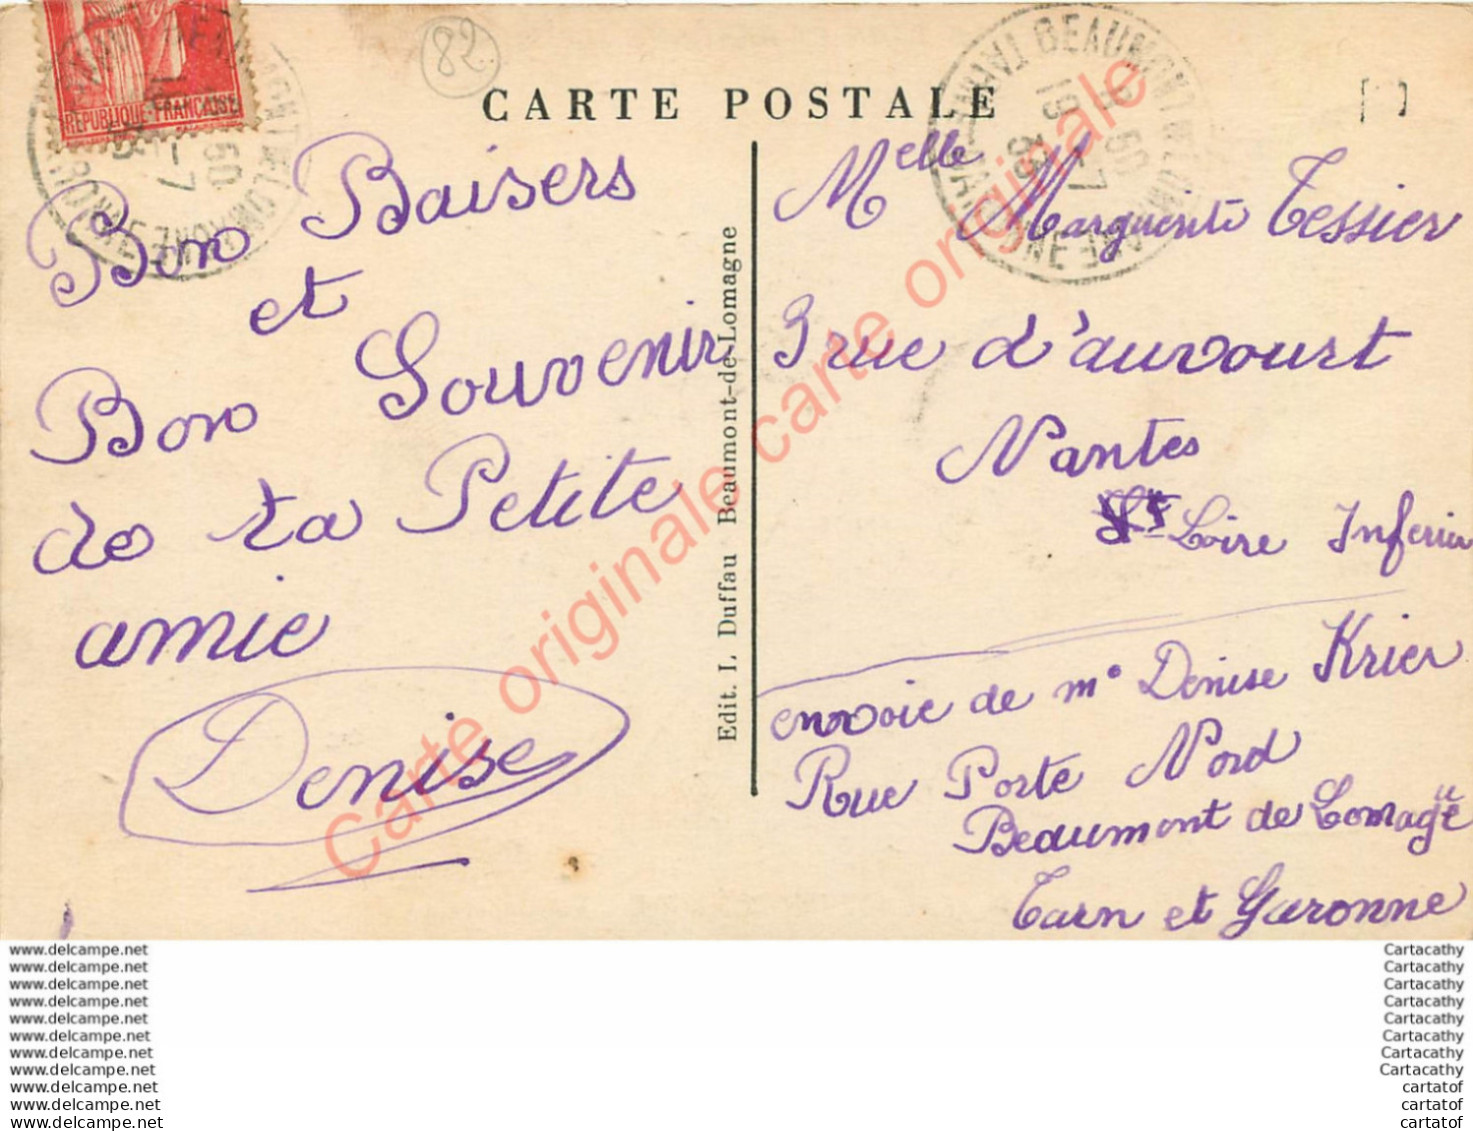 82
CARTE POSTALE
REPUBLIQUE FRANÇAISE
BEAUMONT DE LOMAGNE
TARN ET GARONNE
19 -7
33
Bon Baisers
et
Bon Souvenir
de ta Petite
amie
Denise
Edit. L. Duffau Beaumont-de-Lomagne
Melle Marguerite Tessier
3 rue d'auvourt
Nantes
Loire Inferier
envoie de me Denise Krier
Rue Porte Nord
Beaumont de Lomagne
Tarn et Garonne
Carte originale carte originale
www.delcampe.net
www.delcampe.net
www.delcampe.net
www.delcampe.net
www.delcampe.net
www.delcampe.net
www.delcampe.net
www.delcampe.net
www.delcampe.net
www.delcampe.net
www.delcampe.net
Cartacathy
Cartacathy
Cartacathy
Cartacathy
Cartacathy
Cartacathy
Cartacathy
Cartacathy
cartatof
cartatof
cartatof